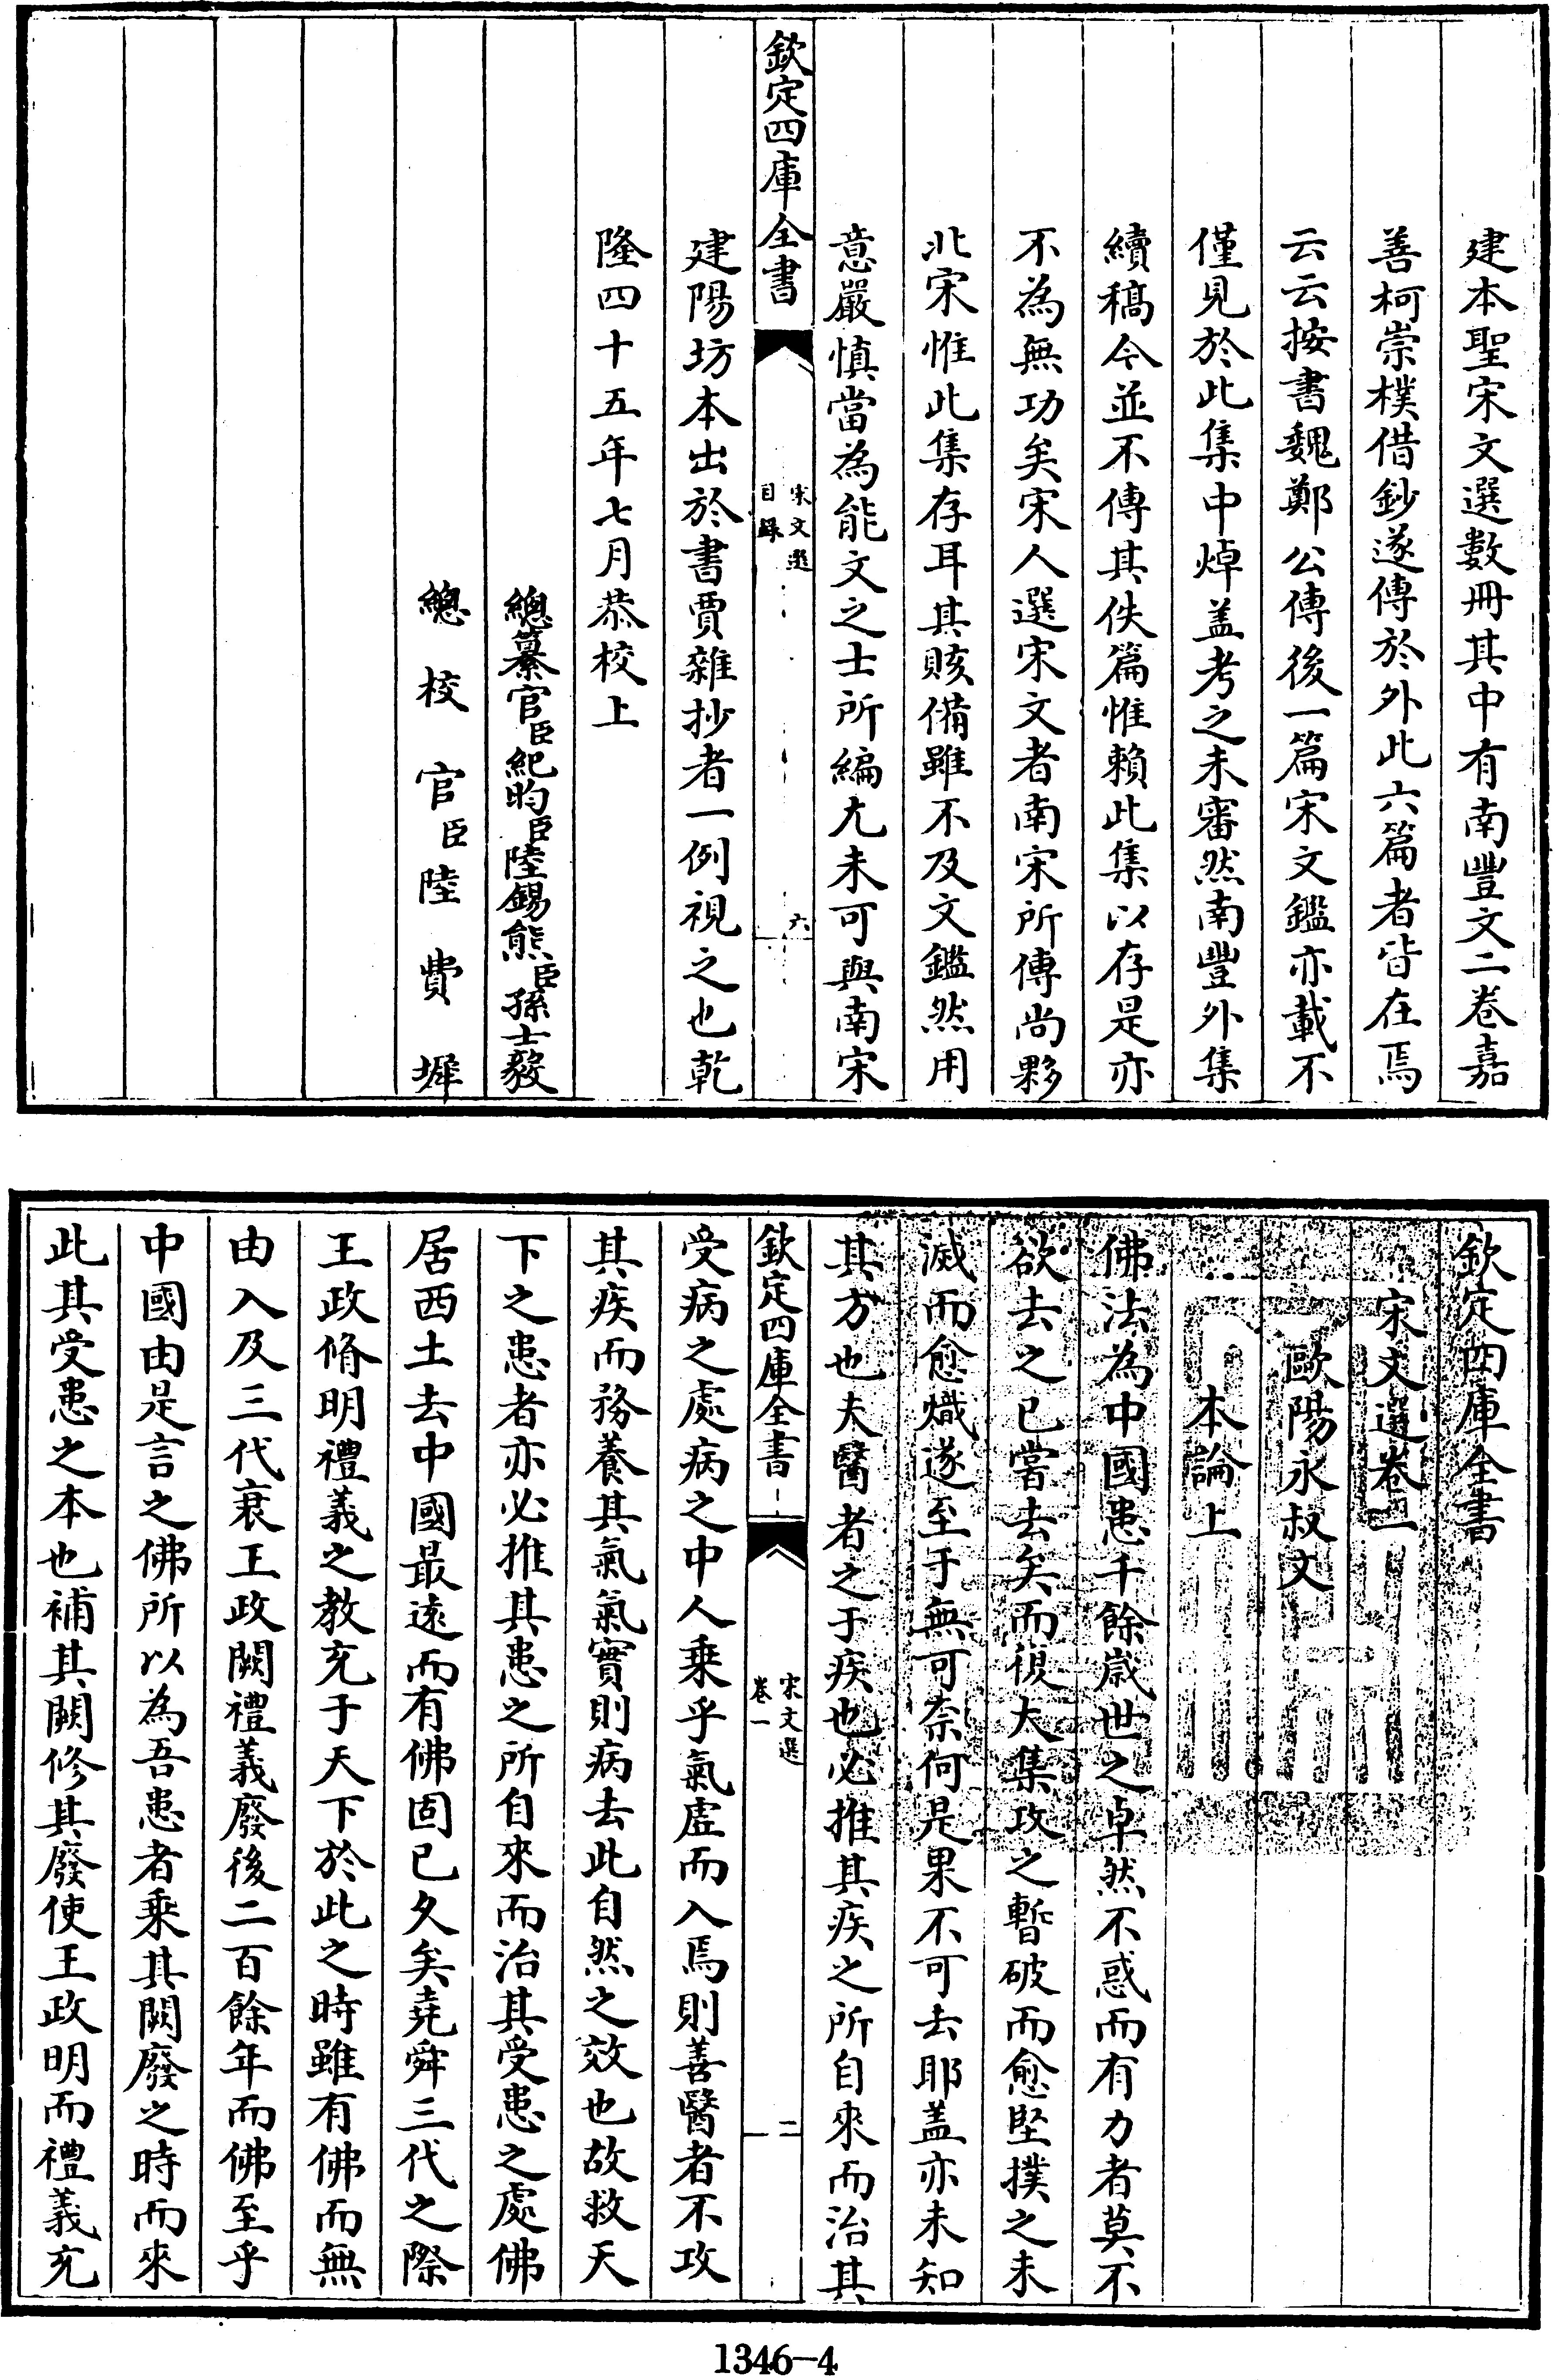 建本聖宋文選數冊其中有南豐文二卷嘉
善柯崇樸借鈔遂傳於外此六篇者皆在焉
云云按書魏鄭公傳後一篇宋文鑑亦載不
僅見於此集中焯盖考之未審然南豐外集
續稿今並不傳其佚篇惟賴此集以存是亦
不為無功矣宋人選宋文者南宋所傳尚夥
北宋惟此集存耳其賅備雖不及文鑑然用
意嚴慎當為能文之士所編尤未可與南宋
欽定四庫全書
宋文選
目錄
六
建陽坊本出於書賈雜抄者一例視之也乾
隆四十五年七月恭校上
總纂官臣紀昀臣陸錫熊臣孫士毅
總校官臣陸費墀
欽定四庫全書
宋文選卷一
歐陽永叔文
本論上
佛法為中國患千餘歲世之卓然不惑而有力者莫不
欲去之已嘗去矣而復大集攻之暫破而愈堅撲之未
滅而愈熾遂至于無可奈何是果不可去耶盖亦未知
其方也夫醫者之于疾也必推其疾之所自來而治其
欽定四庫全書
宋文選
卷一
二
受病之處病之中人乘乎氣虛而入焉則善醫者不攻
其疾而務養其氣氣實則病去此自然之效也故救天
下之患者亦必推其患之所自來而治其受患之處佛
居西土去中國最遠而有佛固已久矣堯舜三代之際
王政脩明禮義之教充于天下於此之時雖有佛而無
由入及三代衰王政闕禮義廢後二百餘年而佛至乎
中國由是言之佛所以為吾患者乘其闕廢之時而來
此其受患之本也補其闕修其廢使王政明而禮義充
1346-4